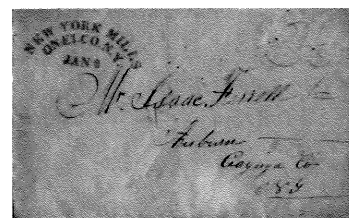 NEW YORK MILLS
ONEI.CO.N.Y.
JAN 6
Mr. Isaac
Auburn
Cayuga Co
N.Y